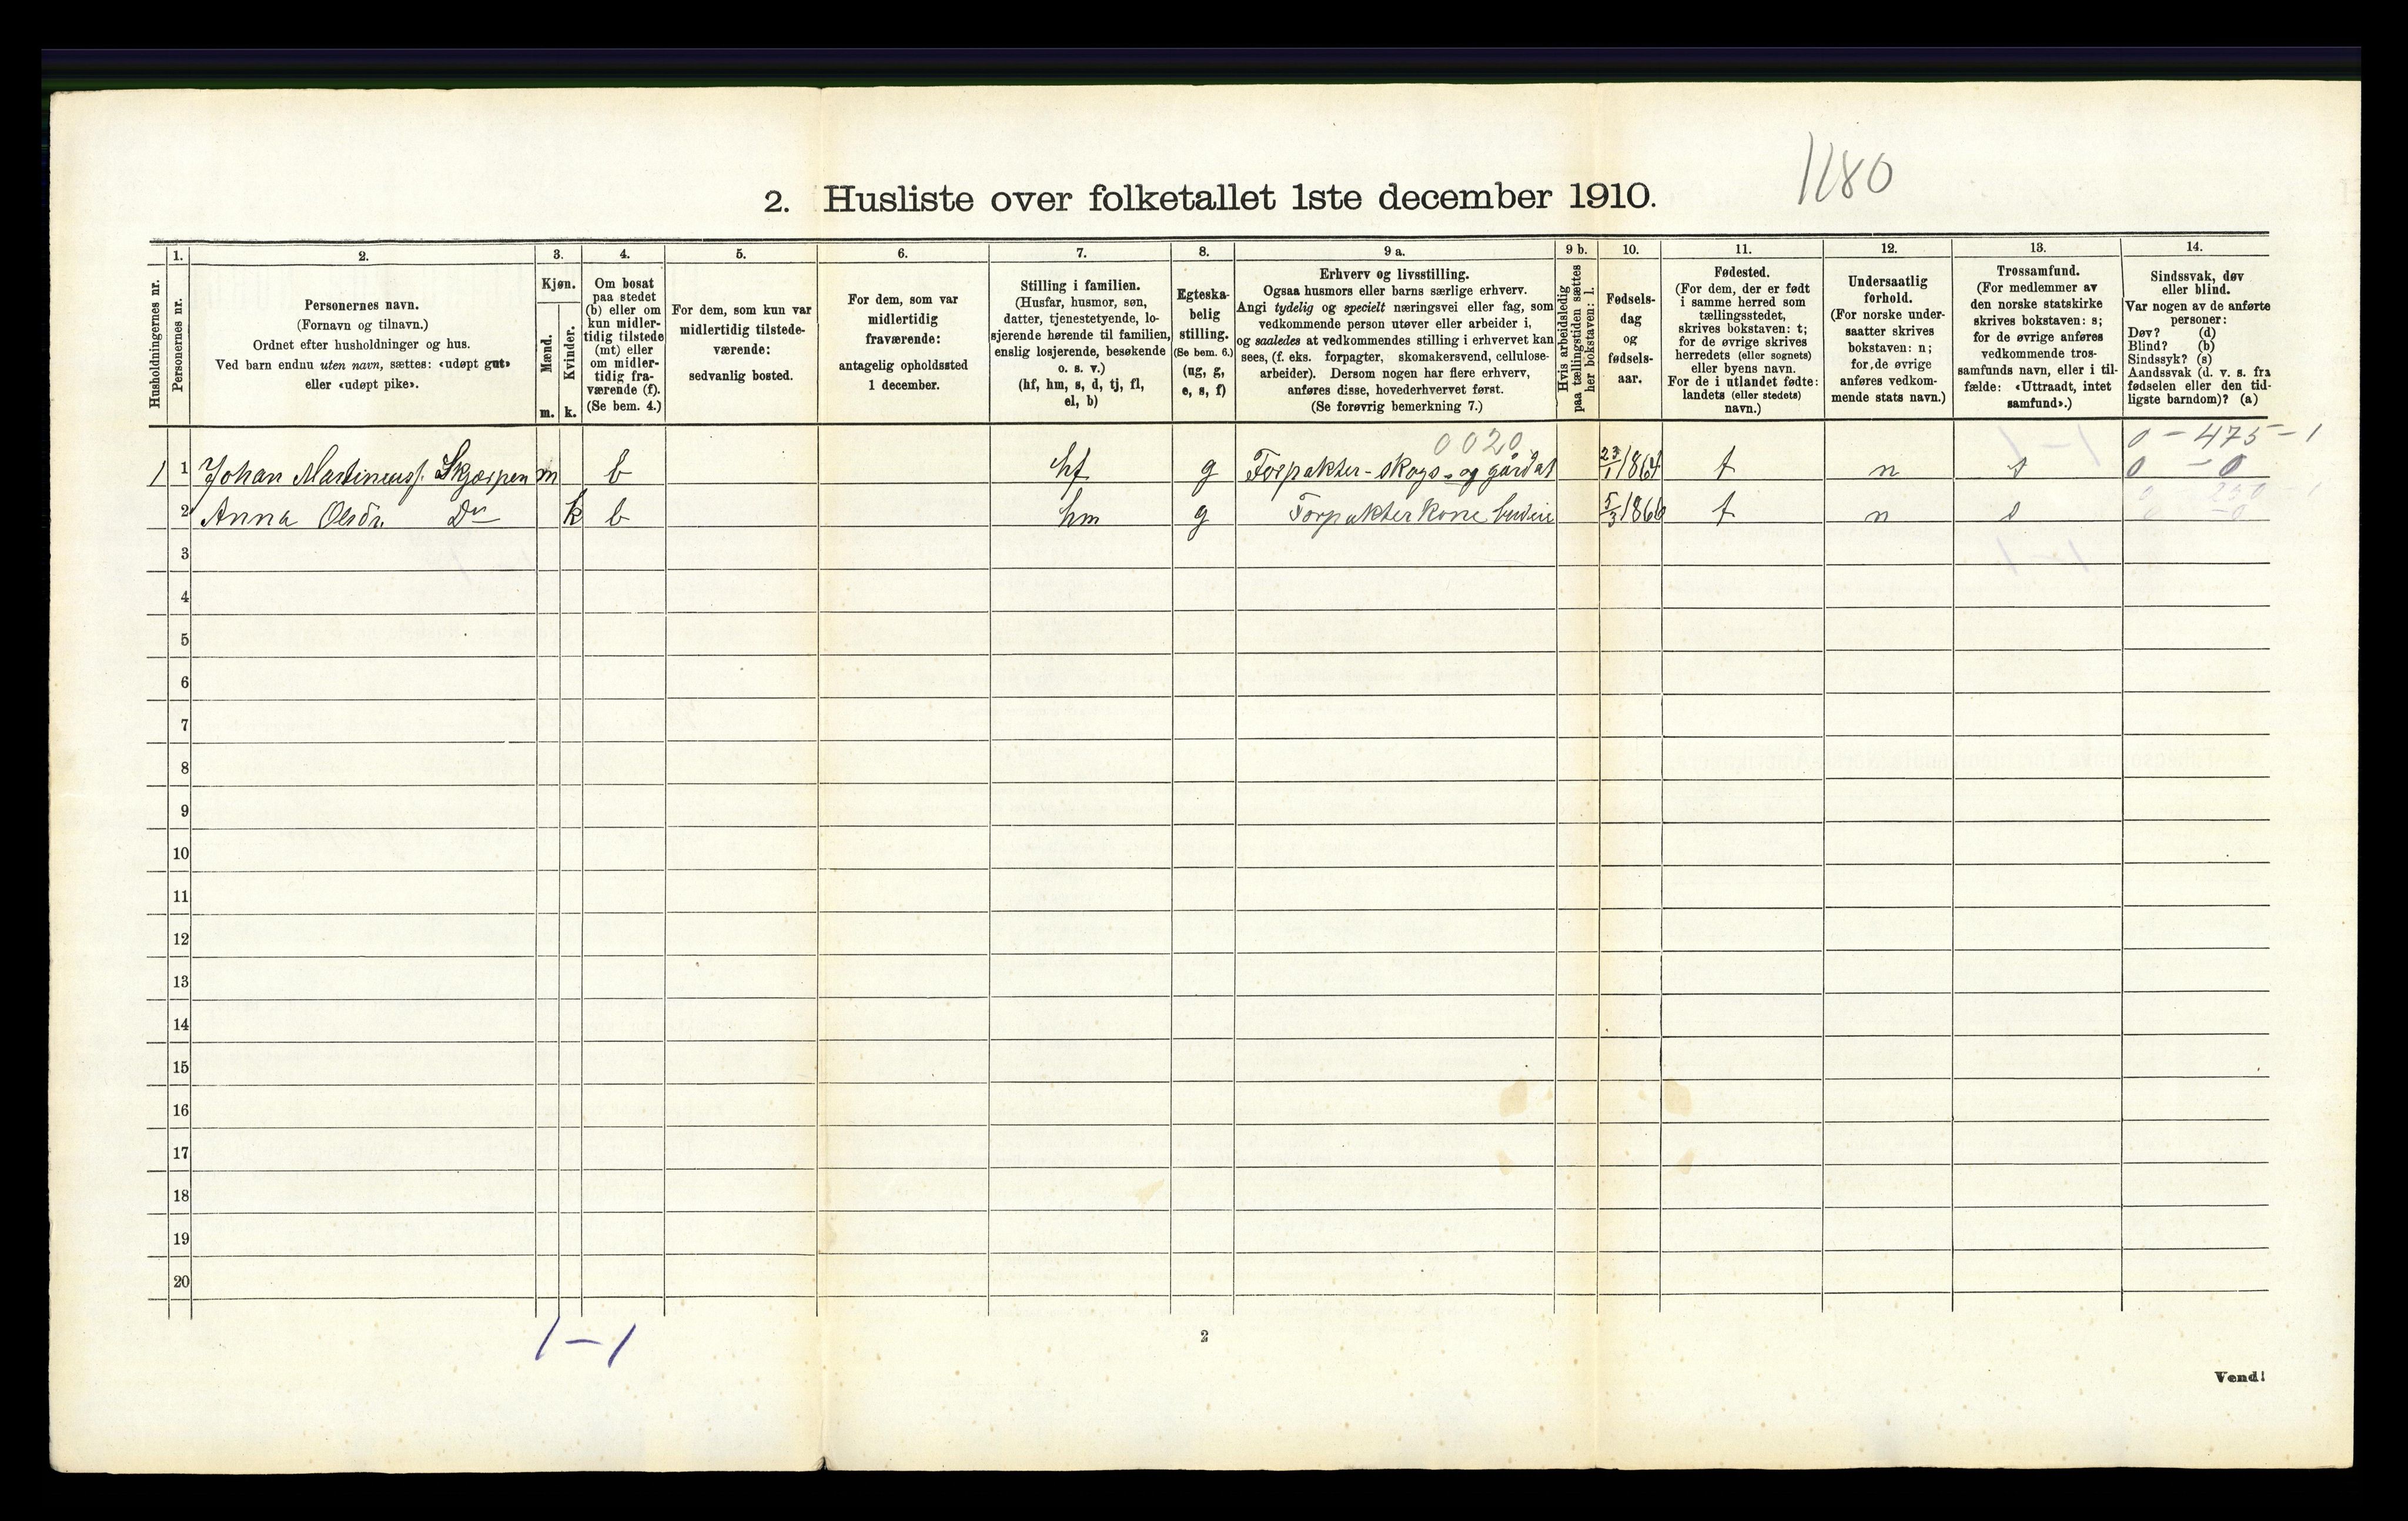 1180
2. Husliste over folketallet 1ste december 1910.
Husholdningernes nr.
1.
Personernes nr.
2.
Personernes navn.
(Fornavn og tilnavn.)
Ordnet efter husholdninger og hus.
Ved barn endnu uten navn, sættes: «udøpt gut»
eller «udøpt pike».
3.
Kjøn.
Mænd.
Kvinder.
m. k.
4.
Om bosat
paa stedet
(b) eller om
kun midler-
tidig tilstede
(mt) eller
om midler-
tidig fra-
værende (f).
(Se bem. 4.)
5.
For dem, som kun var
midlertidig tilstede-
værende:
sedvanlig bosted.
6.
For dem, som var
midlertidig
fraværende:
antagelig opholdssted
1 december.
7.
Stilling i familien.
(Husfar, husmor, søn,
datter, tjenestetyende, lo-
sjerende hørende til familien,
enslig losjerende, besøkende
o. s. v.)
(hf, hm, s, d, tj, fl,
el, b)
8.
Egteska-
belig
stilling.
(Se bem. 6.)
(ug, g,
e, s, f)
9 a.
Erhverv og livsstilling.
Ogsaa husmors eller barns særlige erhverv.
Angi tydelig og specielt næringsvei eller fag, som
vedkommende person utøver eller arbeider i,
og saaledes at vedkommendes stilling i erhvervet kan
sees, (f. eks. forpagter, skomakersvend, cellulose-
arbeider). Dersom nogen har flere erhverv,
anføres disse, hovederhvervet først.
(Se forøvrig bemerkning 7.)
9 b.
Hvis arbeidsledig
paa tællingstiden sættes
her bokstaven: l.
10.
Fødsels-
dag
og
fødsels-
aar.
11.
Fødested.
(For dem, der er født
i samme herred som
tællingsstedet,
skrives bokstaven: t;
for de øvrige skrives
herredets (eller sognets)
eller byens navn.
For de i utlandet fødte:
landets (eller stedets)
navn.)
12.
Undersaatlig
forhold.
(For norske under-
saatter skrives
bokstaven: n;
for de øvrige
anføres vedkom-
mende stats navn.)
13.
Trossamfund.
(For medlemmer av
den norske statskirke
skrives bokstaven: s;
for de øvrige anføres
vedkommende tros-
samfunds navn, eller i til-
fælde: «Uttraadt, intet
samfund».)
14.
Sindssvak, døv
eller blind.
Var nogen av de anførte
personer:
Døv? (d)
Blind? (b)
Sindssyk? (s)
Aandssvak (d. v. s. fra
fødselen eller den tid-
ligste barndom)? (a)
0020 0 - 475 - 1
1 1 Johan Martiniuss. Skjærpen m b hf g Forpakter - skogs- og gårdsa 23/1 1864 t n s 0 - 0
2 Anna Olsdr. Do k b hm g Forpakter kone 5/3 1866 t n s
3
4
5
6
7
8
9
10
11
12
13
14
15
16
17
18
19
20
1 - 1
2
Vend!